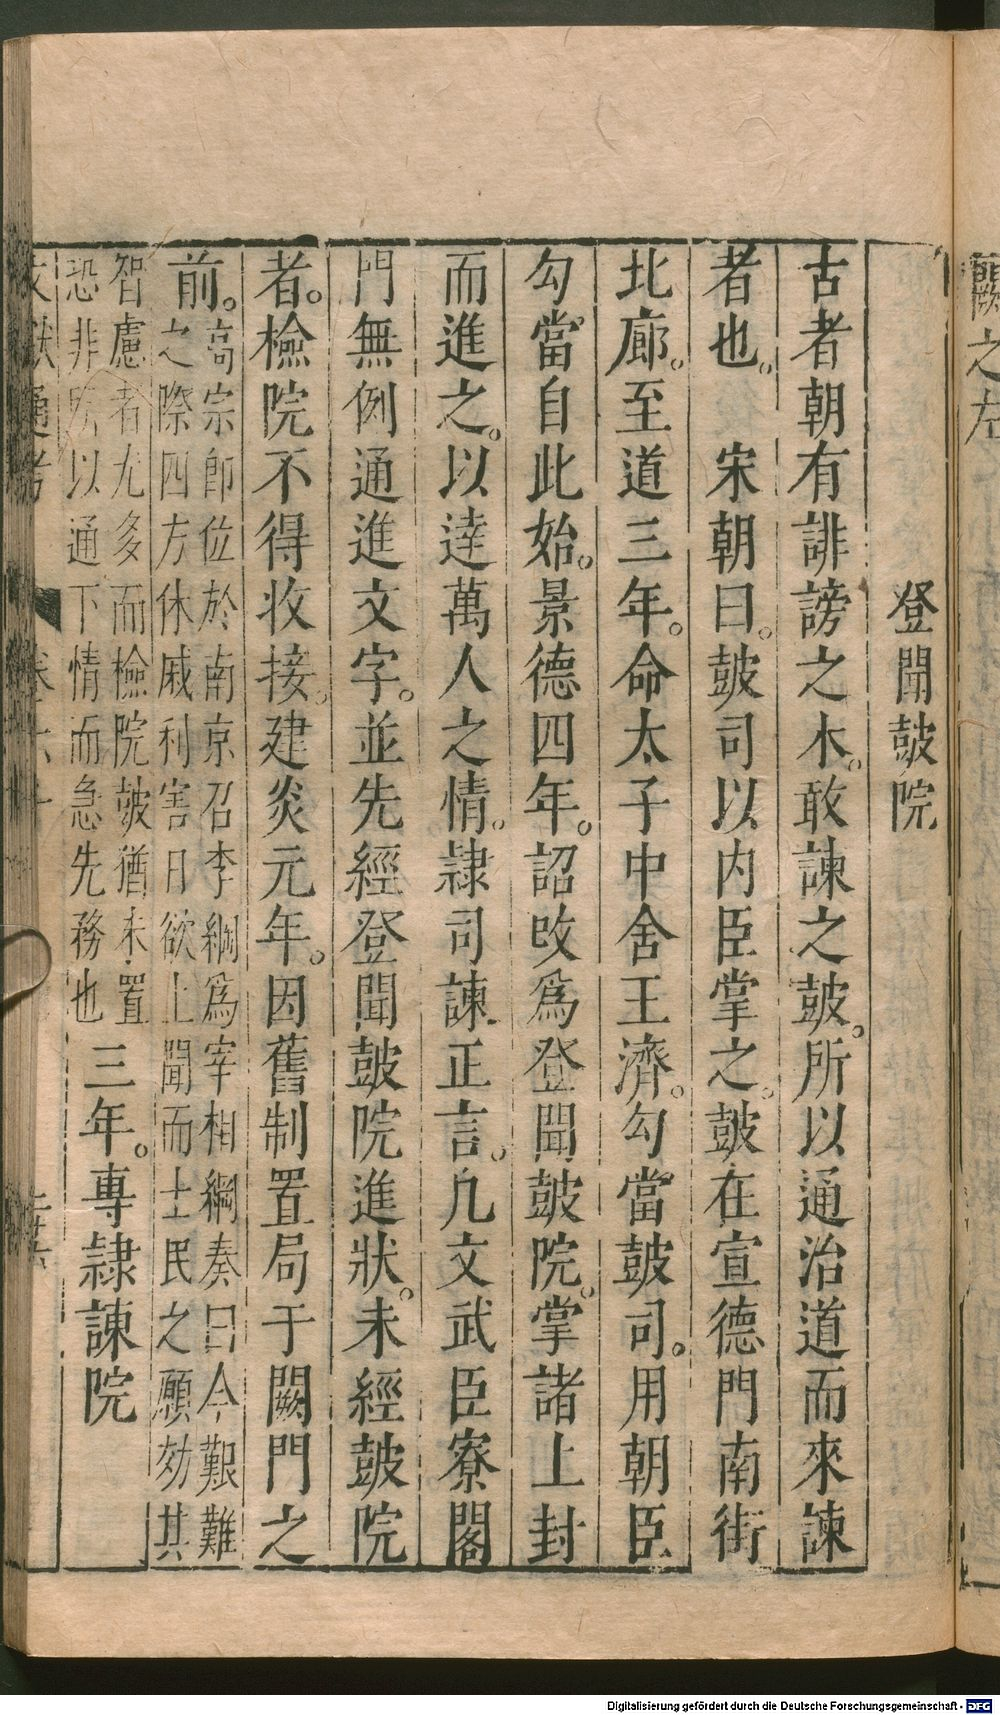 闕之左
登聞皷院
古者朝有誹謗之木。敢諫之皷。所以通治道而來諫
者也。　宋朝曰。皷司以内臣掌之。皷在宣德門南街
北廊。至道三年。命太子中舍王濟。勾當皷司。用朝臣
勾當自此始。景德四年。詔改爲登聞皷院。掌諸上封
而進之。以達萬人之情。隷司諫正言。凡文武臣寮閣
門無例通進文字。並先經登聞皷院進狀。未經皷院
者。檢院不得收接。建炎元年。因舊制置局于闕門之
前。高宗卽位於南京召李綱爲宰相綱奏曰今艱難
之際四方休戚利害日欲上聞而士民之願効其
智慮者尤多而檢院皷猶未置
恐非所以通下情而急先務也　三年。專隷諫院
文獻通考　卷六十
Digitalisierung gefördert durch die Deutsche Forschungsgemeinschaft - DFG